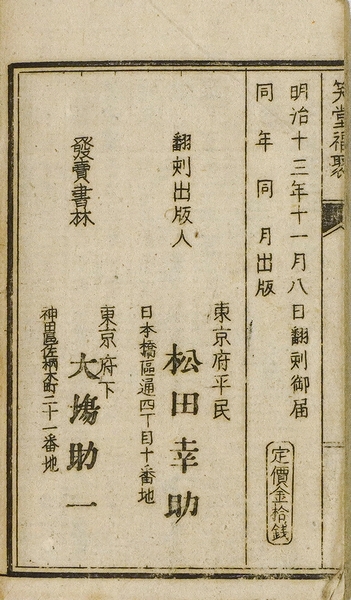 笑堂福聚
明治十三年十一月八日翻刻御届
同年同月出版
定價金拾銭
東京府平民
翻刻出版人
松田幸助
日本橋區通四丁目十番地
東京府下
發賣書林
大塲助一
神田區佐柄木町二十一番地